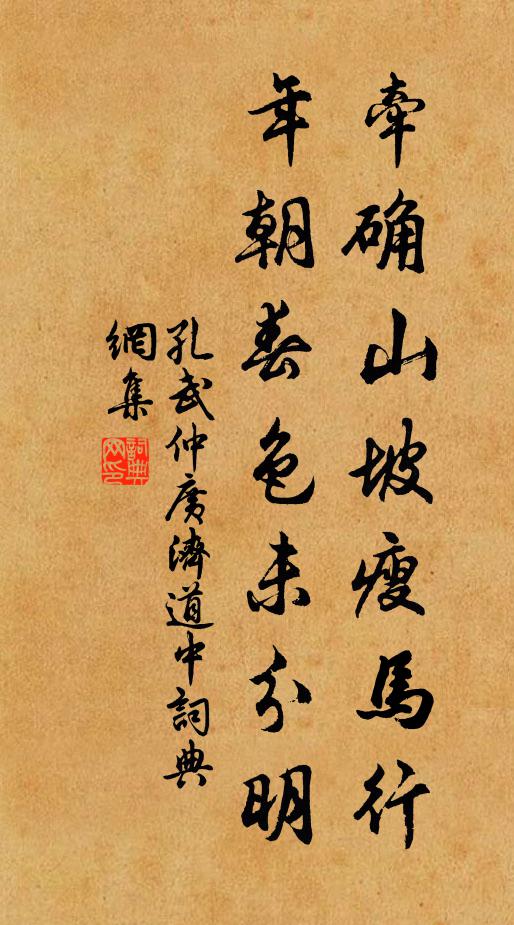 牵确山坡瘦馬行
年朝春色未分明
孔武仲廣濟道中詞典
網集
詞典
网印